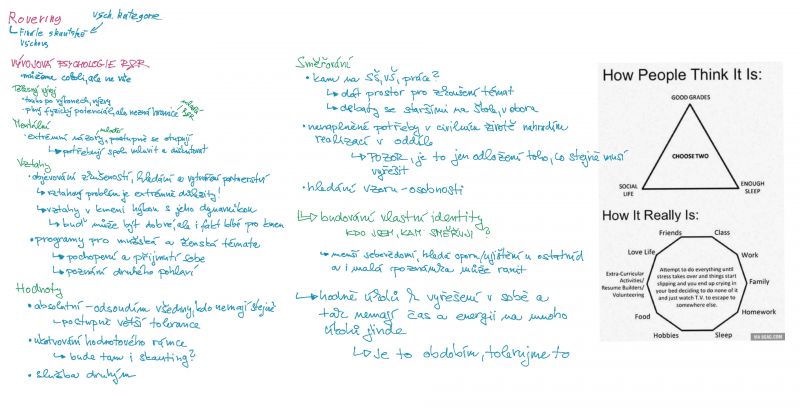 Rovering
vých. kategorie
↳ Finále skautské
výchovy
VÝVOJOVÁ PSYCHOLOGIE R&R
- můžeme cokoli, ale ne vše
Tělesný vývoj
- touha po výkonech, výzvy
- plný fyzický potenciál, ale nezná hranice
mladší
Mentální
mladší
• extrémní názory, postupně se otupují
↳ potřebují spolu mluvit a diskutovat
Vztahy
• objevování zkušeností, hledání a vytváření partnerství
↳ vztahový problém je extrémně důležitý!
↳ vztahy v kmeni hýbou s jeho dynamikou
↳ buď může být dobré, ale i fakt blbé pro kmen
• programy pro mužská a ženská témata
↳ pochopení a přijmutí sebe
↳ poznání druhého pohlaví
Hodnoty
• absolutní - odsoudím všechny, kdo nemají stejné
↳ postupně větší tolerance
• utvořování hodnotového rámce
↳ bude tam i skauting?
• služba druhým
Směřování
• kam na SŠ, VŠ, práce?
↳ dát prostor pro zkoušení témat
↳ debaty se staršími na škole, v oboru
• nenaplněné potřeby v civilním životě nahradím
realizací v oddíle
↳ POZOR, je to jen odložení toho, co stejně musí
vyřešit
• hledání vzoru - osobnosti
↳ budování vlastní identity
KDO JSEM, KAM SMĚŘUJI?
↳ menší sebevědomí, hledá oporu/ujištění u ostatních
a i malá poznámka může ranit
↳ hodně úkolů k vyřešení v sobě a
tak nemají čas a energii na mnoho
úkolů jinde
↳ Je to obdobím, tolerujme to
How People Think It Is:
GOOD GRADES
CHOOSE TWO
SOCIAL
LIFE
ENOUGH
SLEEP
How It Really Is:
Friends
Class
Love Life
Work
Extra-Curricular
Activities/
Resume Builders/
Volunteering
Attempt to do everything until
stress takes over and things start
slipping and you end up crying in
your bed deciding to do none of it
and just watch T.V. to escape to
somewhere else.
Family
Food
Homework
Hobbies
Sleep
VIA 9GAG.COM